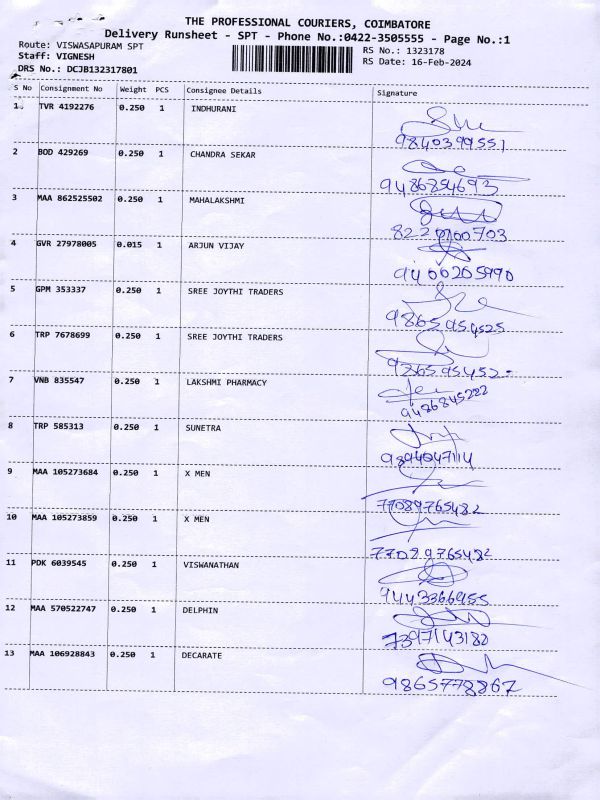 THE PROFESSIONAL COURIERS, COIMBATORE
Delivery Runsheet - SPT - Phone No.:0422-3505555 - Page No.:1
Route: VISWASAPURAM SPT
Staff: VIGNESH
DRS No.: DCJB132317801
RS No.: 1323178
RS Date: 16-Feb-2024
S No Consignment No Weight PCS Consignee Details Signature
1 TVR 4192276 0.250 1 INDHURANI
9840399551
2 BOD 429269 0.250 1 CHANDRA SEKAR
9486854693
3 MAA 862525502 0.250 1 MAHALAKSHMI
8220100703
4 GVR 27978005 0.015 1 ARJUN VIJAY
9400205990
5 GPM 353337 0.250 1 SREE JOYTHI TRADERS
9865954525
6 TRP 7678699 0.250 1 SREE JOYTHI TRADERS
7 VNB 835547 0.250 1 LAKSHMI PHARMACY
9486845222
8 TRP 585313 0.250 1 SUNETRA
9894047114
9 MAA 105273684 0.250 1 X MEN
77089765482
10 MAA 105273859 0.250 1 X MEN
77089765482
11 PDK 6039545 0.250 1 VISWANATHAN
9443366955
12 MAA 570522747 0.250 1 DELPHIN
7397143180
13 MAA 106928843 0.250 1 DECARATE
9865778867